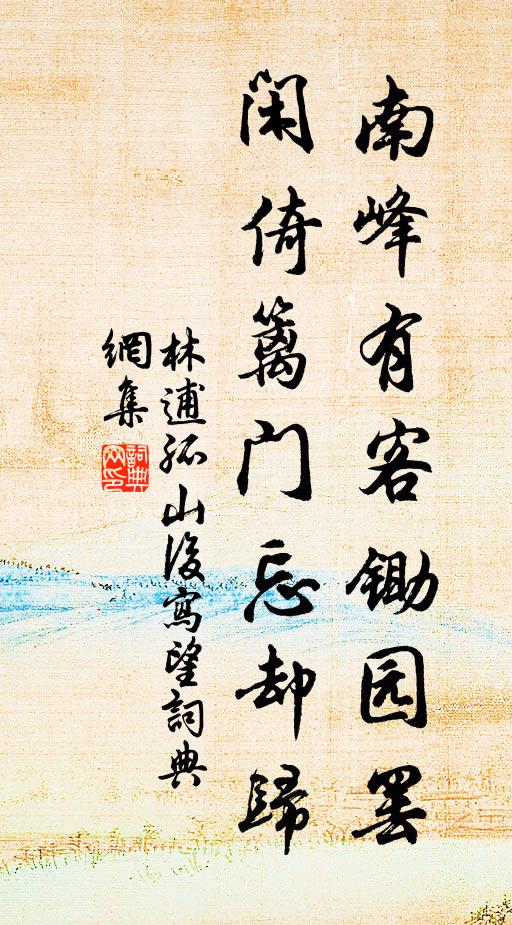 南峰有客锄园罢
闲倚篱门忘却歸
林逋孤山後寫望詞典
網集
詞典
网印